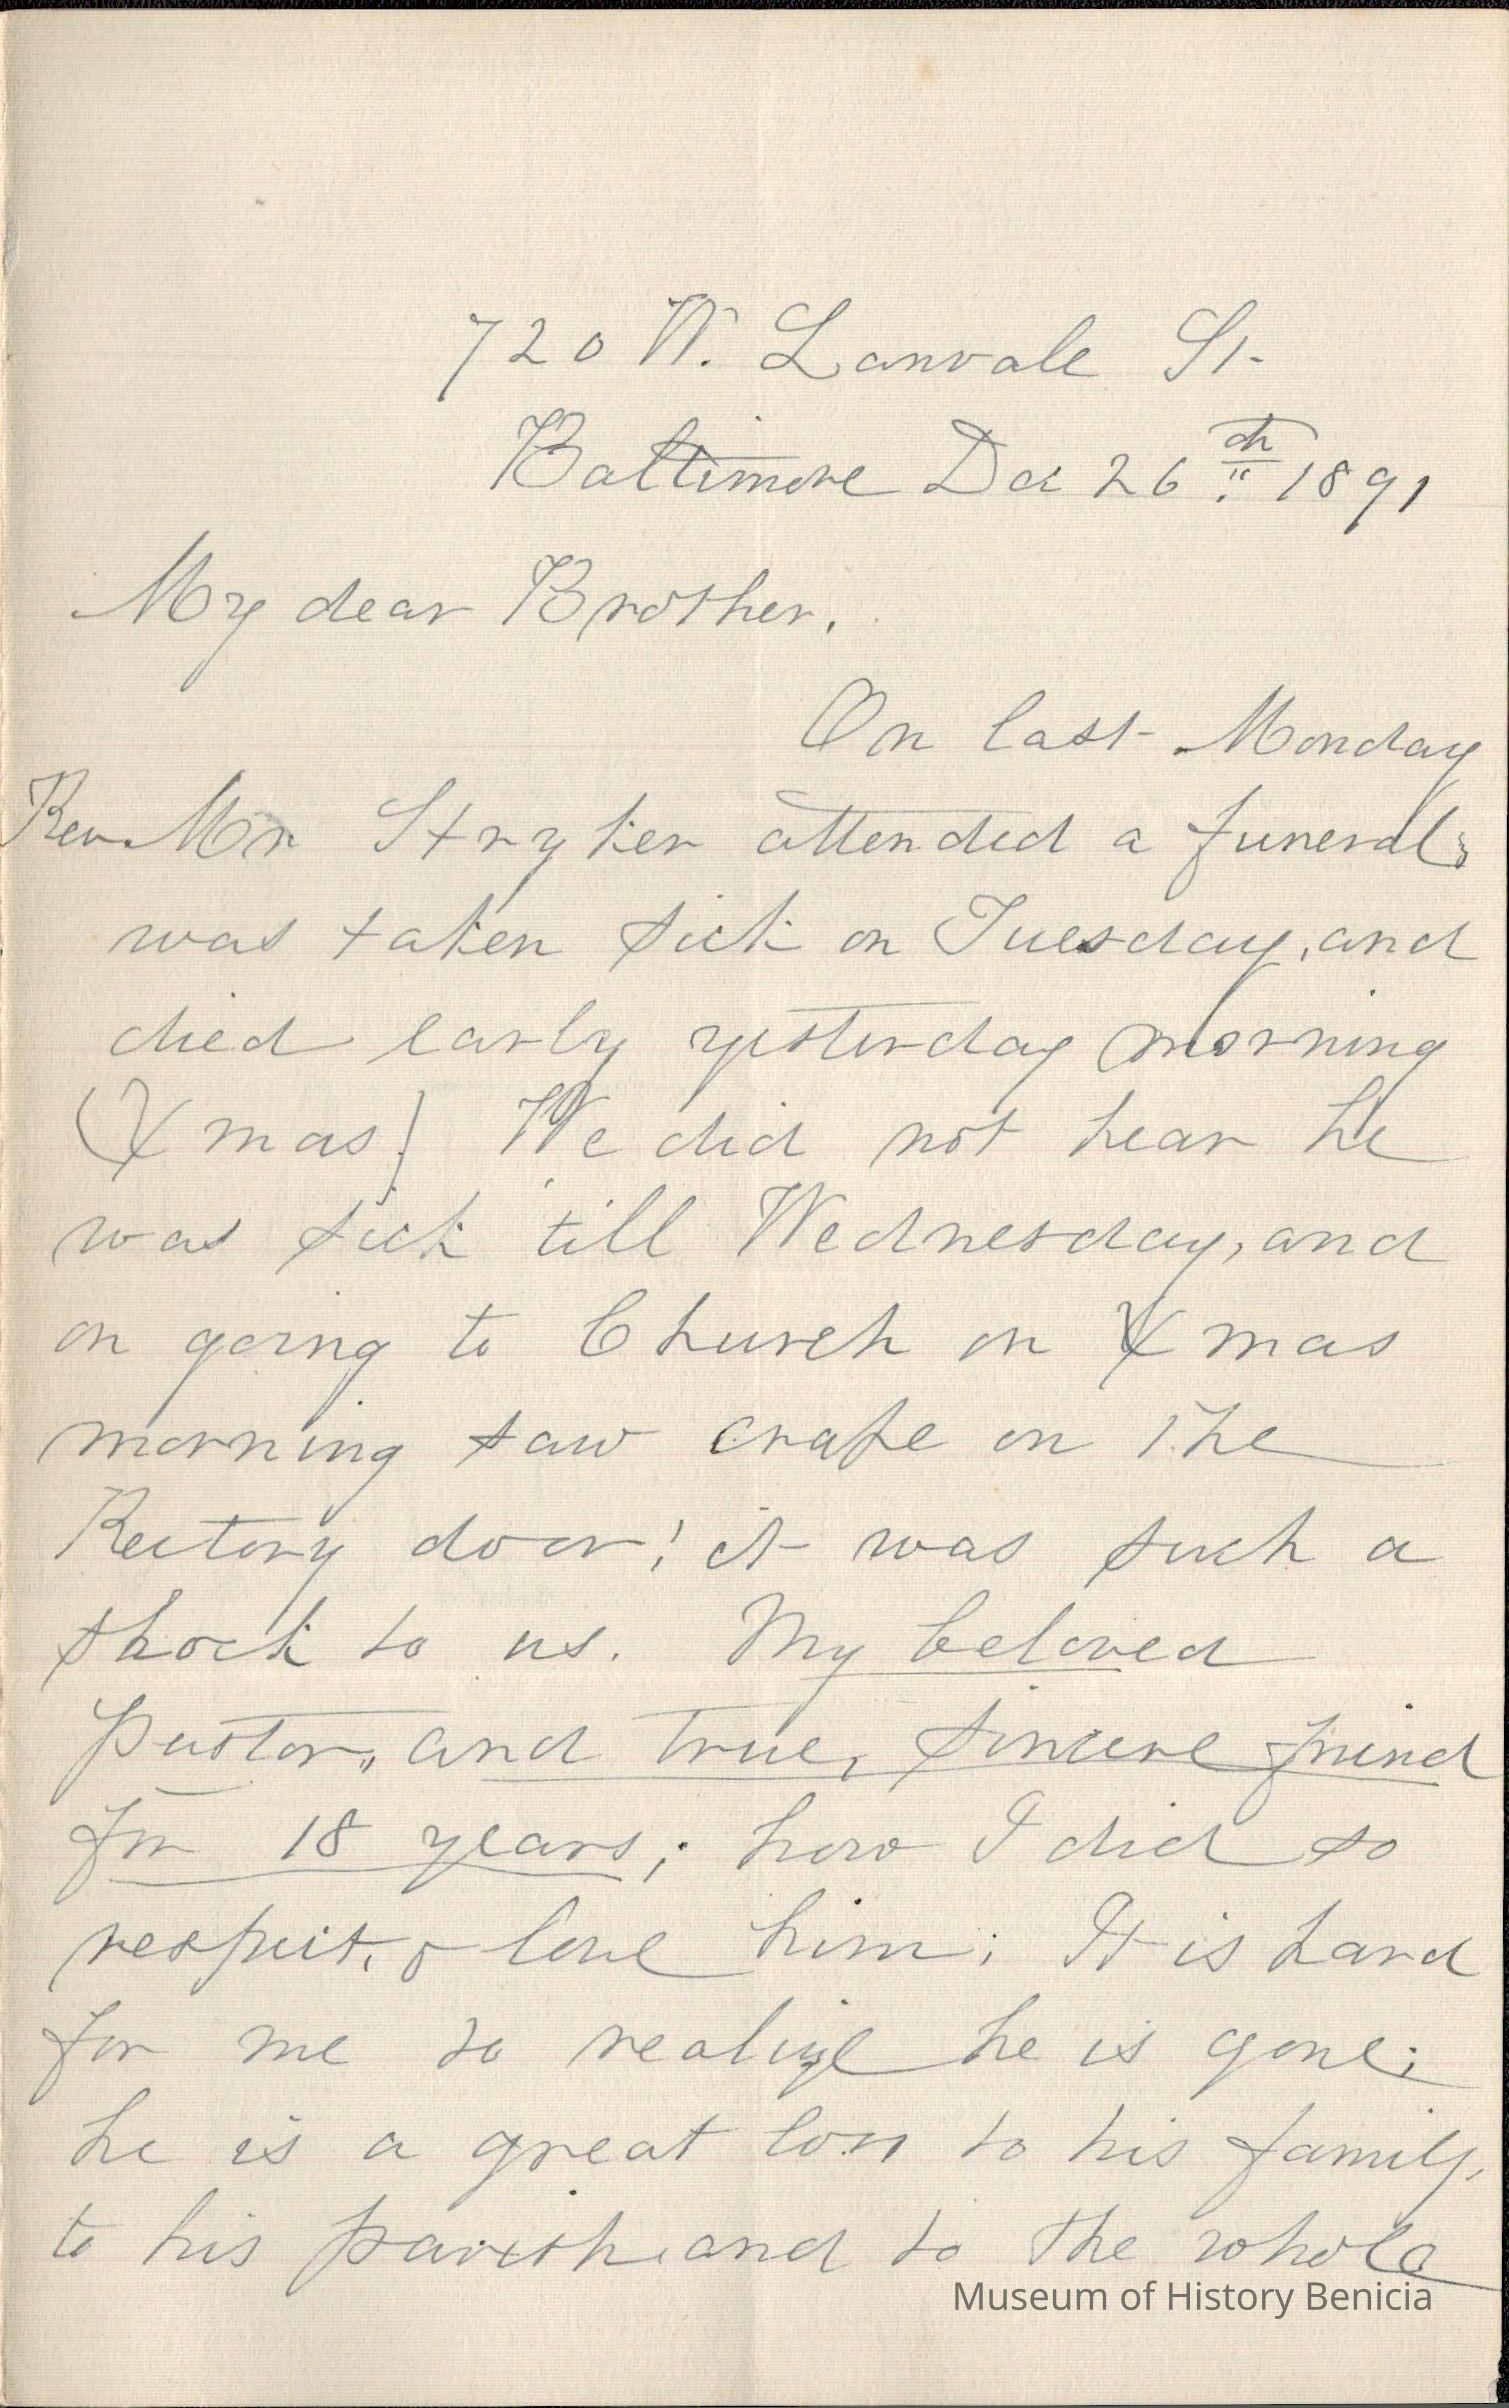 720 W. Lanvale St.
Baltimore Dec 26th 1891
My dear Brother,
On last Monday
Rev Mr Stryker attended a funeral;
was taken sick on Tuesday, and
died early yesterday morning
(Xmas) We did not hear he
was sick till Wednesday, and
on going to Church on Xmas
morning saw crape on the
Rectory door! it was such a
shock to us. My beloved
pastor, and true, sincere friend
for 18 years; how I did so
respect, & love him; It is hard
for me to realize he is gone;
he is a great loss to his family,
to his parish, and to the whole
Museum of History Benicia